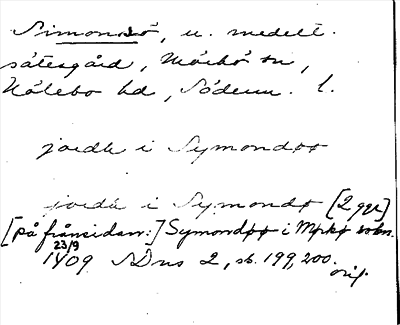 Simonsö, u. medelt.
sätesgård, Mörkö sn,
Hölebo hd, Söderm. l.
jordh i Symondøø
jordh i Symondø [2 ggr]
[på frånsidan:] Symondøø i Mørkø sokn.
23/9
1409 SDns 2, sb. 199, 200. orig.